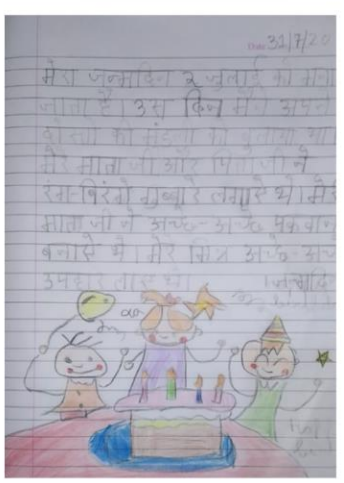 Date 31/7/20
मेरा जन्मदिन २ जुलाई को मना
जाता है। उस दिन मैंने अपने
दोस्तो की मंडली को बुलाया था।
मेरे माता जी और पिता जी ने
रंग-बिरंगे गुब्बारे लगाऐ थे। मेरे
माता जी ने अच्छे-अच्छे पकवान
बनाऐ थे। मेरे मित्र अच्छे-अच
उपहार लाऐ थे।